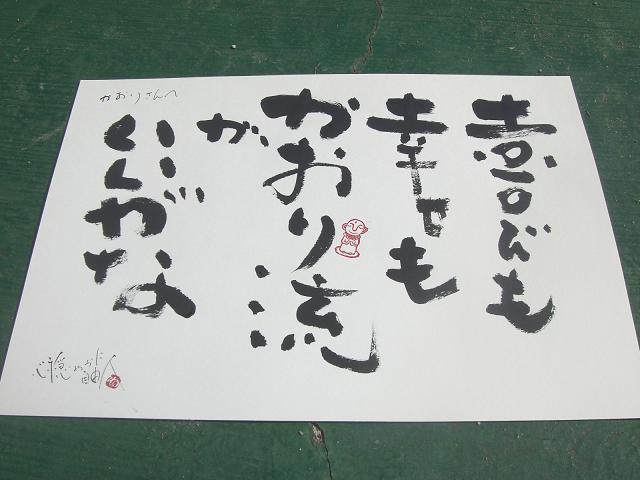 かおりさんへ
喜びも
幸せも
かおり流
が
いいがな